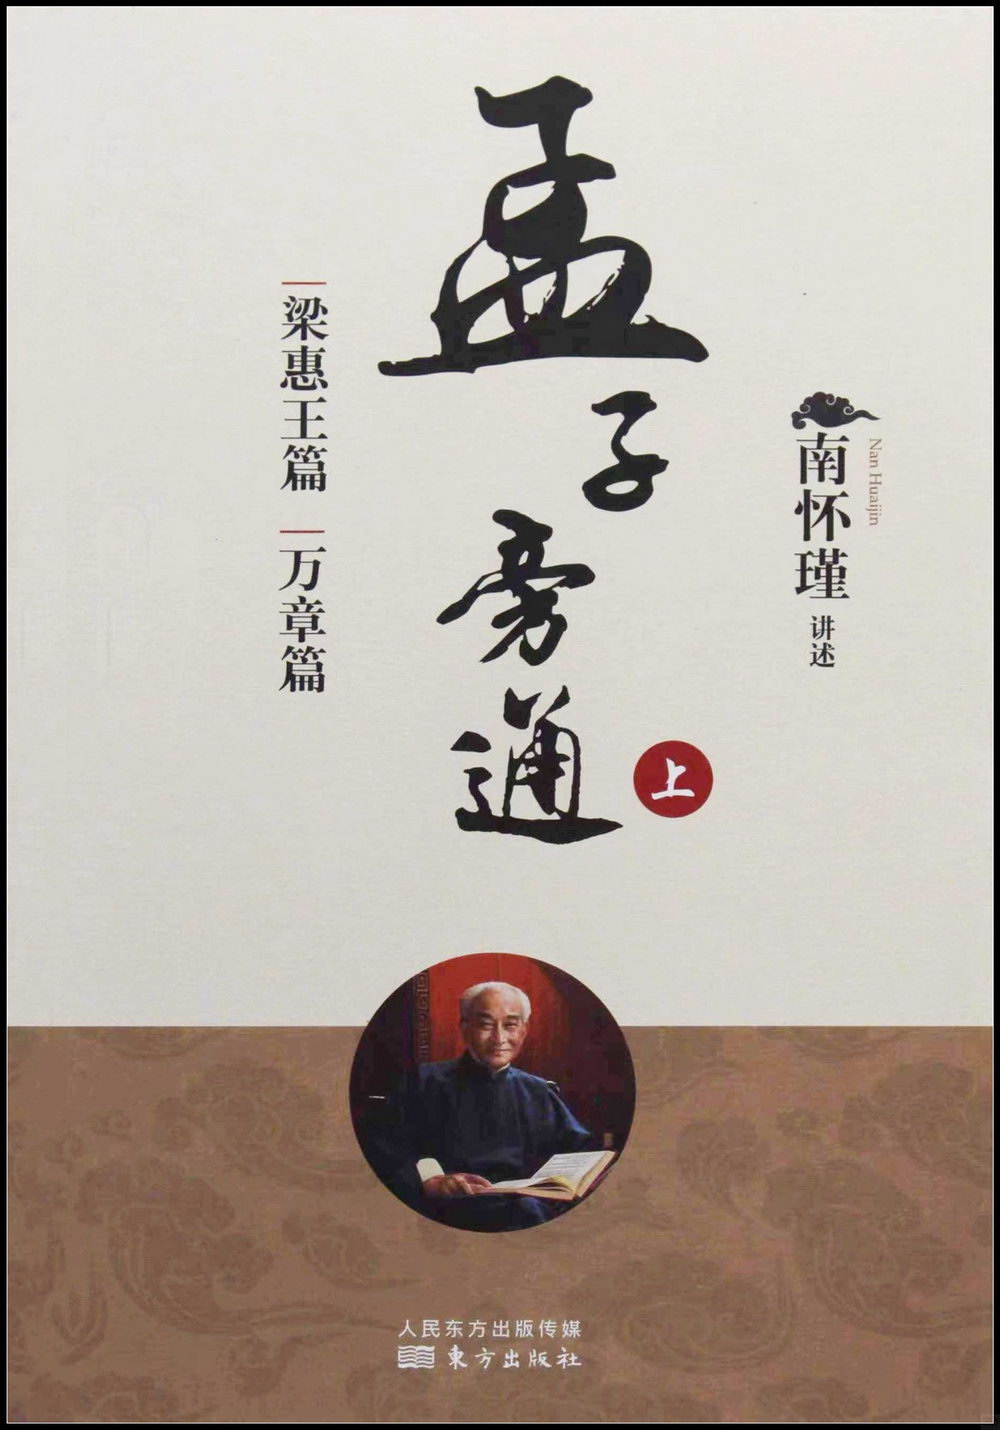 南怀瑾 讲述
Nan Huaijin
孟子旁通
上
梁惠王篇 万章篇
人民东方出版传媒
東方出版社